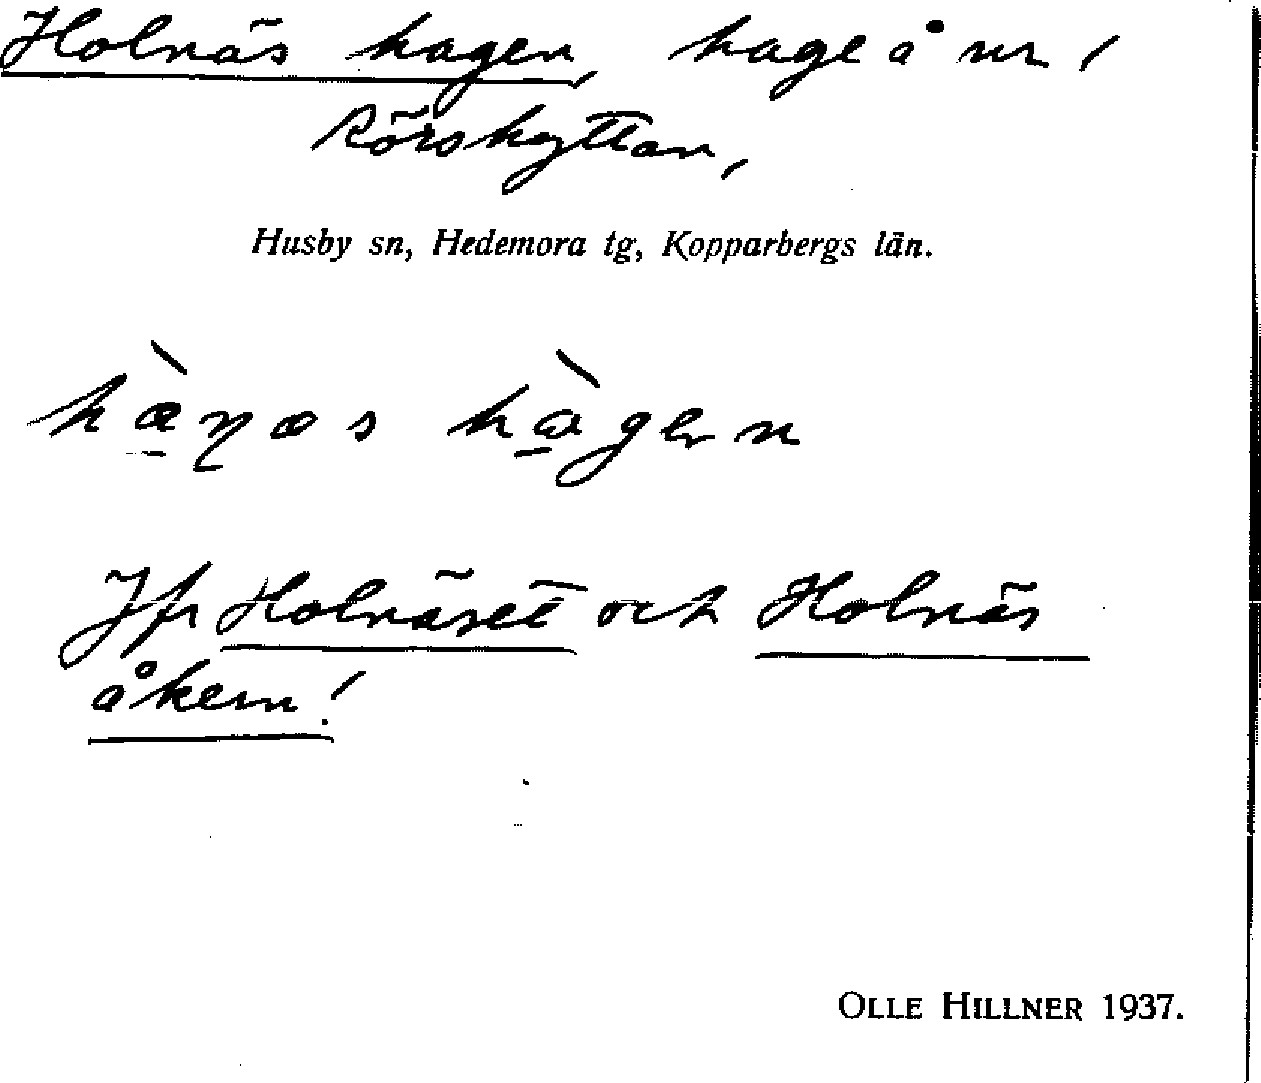 Holnäs hagen, hage å nr 1
Rörshyttan,
Husby sn, Hedemora tg, Kopparbergs län.
Jfr Holnäset och Holnäs
åkern!
OLLE HILLNER 1937.